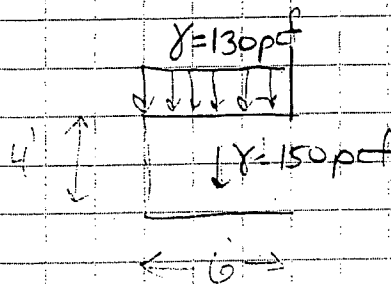 γ=130pcf
4'
γ=150pcf
6